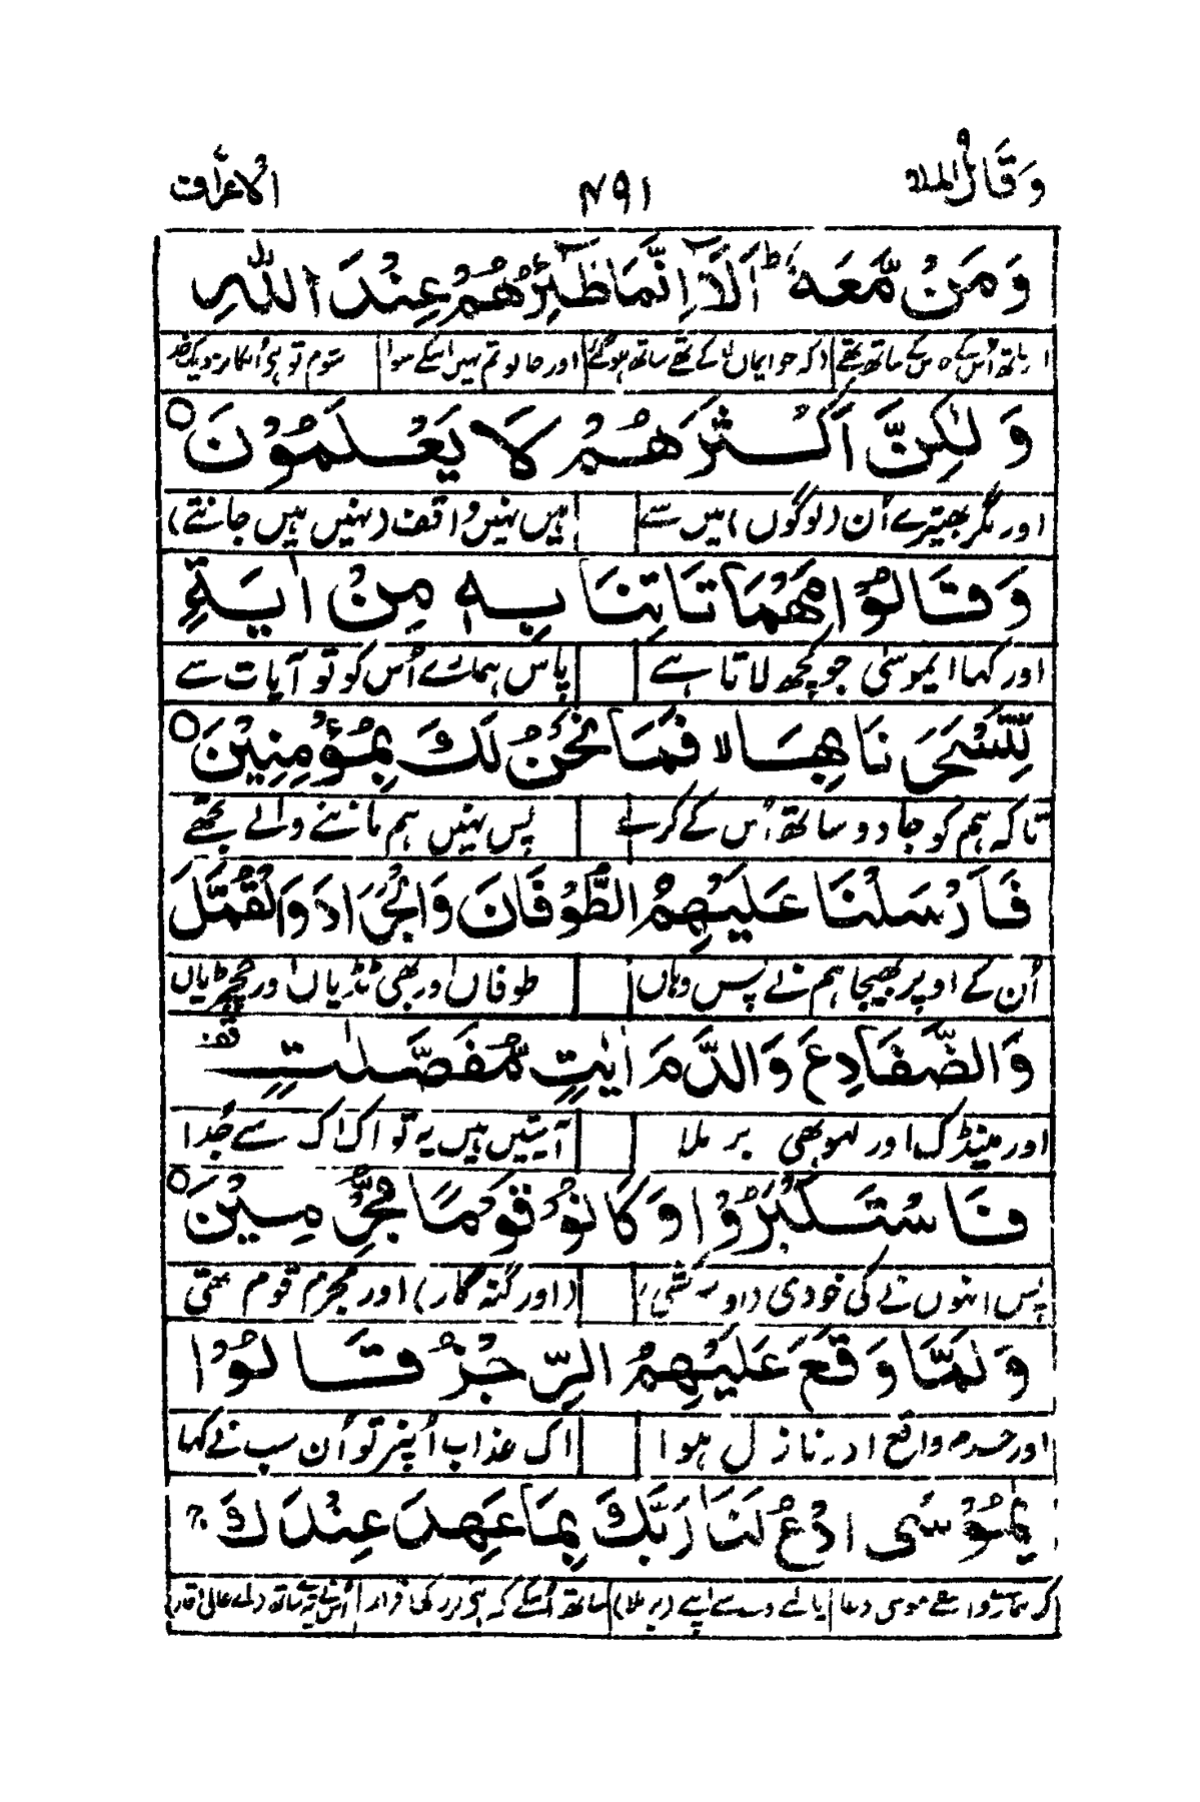 وَقَالَ الملا ۹ ۴۹۱ الاعراف
وَمَنْ مَّعَهٗ ؕ اَلَاۤ اِنَّمَا طٰٓئِرُهُمْ عِنْدَ اللّٰهِ
ساتھ اُس کے ساتھ تھے کے ساتھ ہو گئے اور جا لو تم
وَلٰكِنَّ اَكْثَرَهُمْ لَا يَعْلَمُوْنَ ○
اور مگر بھیترے اُن (لوگوں) میں سے ہیں نہیں واقف (نہیں ہیں جانتے)
وَقَالُوْا مَهْمَا تَاْتِنَا بِهٖ مِنْ اٰيَةٍ
اور کہا ایموسٰی جو کچھ لاتا ہے پاس ہمارے اُس کو تو آیات سے
لِّتَسْحَرَنَا بِهَا ۙ فَمَا نَحْنُ لَكَ بِمُؤْمِنِيْنَ ○
تاکہ ہم کو جادو ساتھ اُس کے کرلے پس نہیں ہم ماننے والے تجھے
فَاَرْسَلْنَا عَلَيْهِمُ الطُّوْفَانَ وَالْجَرَادَ وَالْقُمَّلَ
اُن کے اوپر بھیجا ہم نے پس وہاں طوفاں اور بھی ٹڈیاں اور چچڑیاں
وَالضَّفَادِعَ وَالدَّمَ اٰيٰتٍ مُّفَصَّلٰتٍ قف
اور مینڈک اور لہو بھی بر ملا آیتیں ہیں یہ تو اک اک سے جُدا
فَاسْتَكْبَرُوْا وَكَانُوْا قَوْمًا مُّجْرِمِيْنَ ○
پس انہوں نے کی خودی (اور کشی) (اور گنہ گار) اور مجرم قوم تھی
وَلَمَّا وَقَعَ عَلَيْهِمُ الرِّجْزُ قَالُوْا
اور واقع اور نازل ہوا اک عذاب اُنپر تو اُن سب نے کہا
يٰمُوْسَى ادْعُ لَنَا رَبَّكَ بِمَا عَهِدَ عِنْدَكَ ۚ
موسی دعا سے اپنے (بر ملا) ساتھ کے کہ